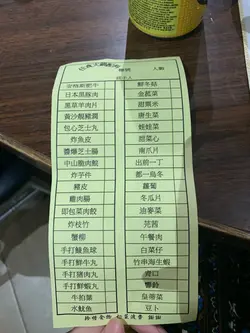 人數
安格斯肥牛
鮮冬菇
日本黑豚肉
金菇菜
黑草羊肉片
甜粟米
黃沙豬膶
唐生菜
包心芝士丸
娃娃菜
炸魚皮
甜菜心
醬爆芝士腸
南瓜片
中山脆肉鯇
出前一丁
炸芋件
都一烏冬
豬皮
蘿蔔
雞肉腸
冬瓜片
即包菜肉餃
油麥菜
炸枝竹
芫茜
蟹柳
午餐肉
手打鯪魚球
白菜仔
手打鮮牛丸
竹串海生蝦
手打豬肉丸
青口
手打鮮蝦丸
響鈴
牛柏葉
茼蒿菜
水魷魚
豆卜